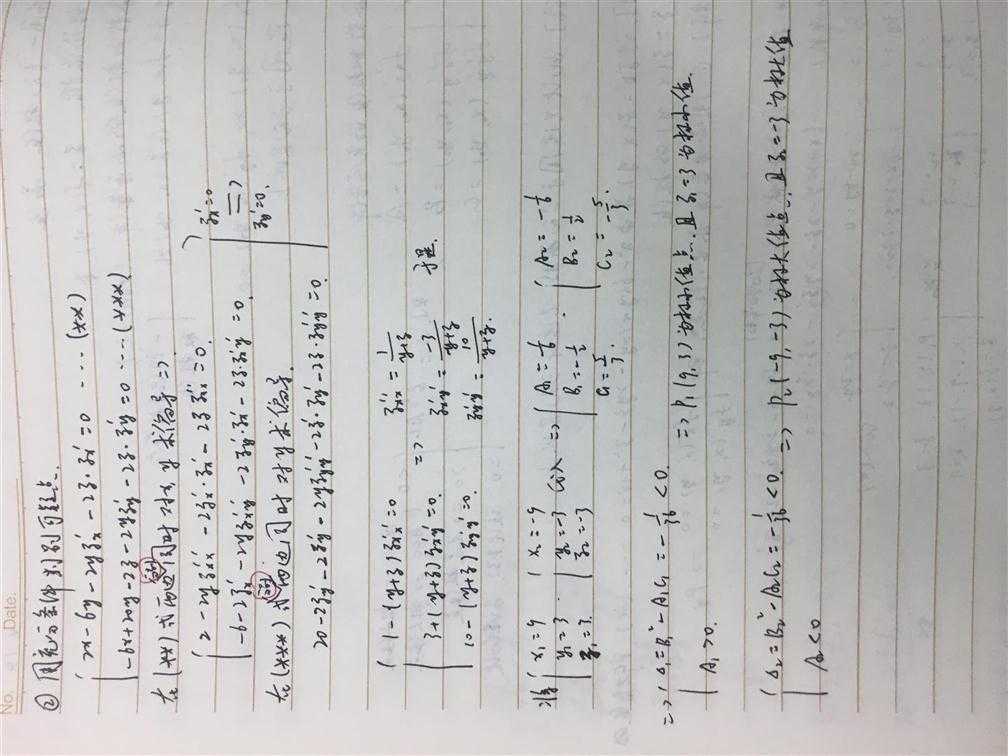 No.
Date.
② 用充分条件判别可疑点.
{ 2x-6y-2yz'x-2z·z'x=0 ···· (**)
-6x+20y-2z-2yz'y-2z·z'y=0 ···· (***)
在(**)式两边同时对x,y求偏导 =>
{ 2-2yz''xx-2z'x·z'x-2z z''xx=0.
-6-2z'x-2yz''xy-2z'y·z'x-2z·z''xy=0.
在(***)式两边同时对y求偏导
20-2z'y-2z'y-2yz''yy-2z'y·z'y-2z·z''yy=0.
z'x=0
=>
z'y=0.
{ 1-(y+z)z''xx=0
3+(y+z)z''xy=0.
10-(y+z)z''yy=0.
=>
z''xx=1/(y+z)
z''xy=-3/(y+z)
z''yy=10/(y+z).
于是.
将 { x₁=9 y₁=3 z₁=3. { x₂=-9 y₂=-3 z₂=-3 代入 => { A₁=1/6 B₁=-1/2 C₁=5/3. { A₂=-1/6 B₂=1/2 C₂=-5/3.
=> { Δ₁=B₁²-A₁C₁=-1/36<0 => P₁(9,3)为极小值点.且z₁=3为极小值.
A₁>0.
{ Δ₂=B₂²-A₂C₂=-1/36<0. => P₂(-9,-3)为极大值点.且z₂=-3为极大值
A₂<0